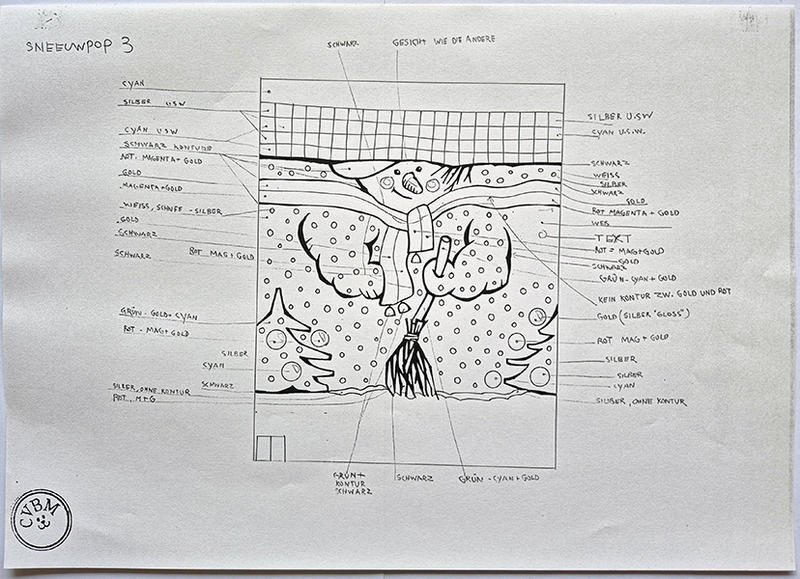 SNEEUWPOP 3
SCHWARZ
GESICHT WIE DIE ANDERE
CYAN
SILBER USW
CYAN USW
SCHWARZ KONTURE
ROT: MAGENTA + GOLD
GOLD
MAGENTA + GOLD
WEISS, SCHNEE - SILBER
GOLD
SCHWARZ
ROT MAG + GOLD
SCHWARZ
GRÜN - GOLD + CYAN
ROT - MAG + GOLD
SILBER
CYAN
SCHWARZ
SILBER, OHNE KONTUR
ROT, M+G
SILBER U.SW
CYAN U.S.W.
SCHWARZ
WEISS
SILBER
SCHWARZ
GOLD
ROT MAGENTA + GOLD
TEXT
ROT = MAG + GOLD
GOLD
SCHWARZ
GRÜN - CYAN + GOLD
KEIN KONTUR ZW. GOLD UND ROT
GOLD (SILBER "GLOSS")
ROT MAG + GOLD
SILBER
SILBER
CYAN
SILIBER, OHNE KONTUR
GRÜN +
KONTUR
SCHWARZ
SCHWARZ
GRÜN - CYAN + GOLD
CVBM